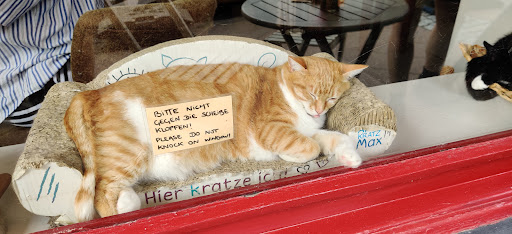 BITTE NICHT
GEGEN DIE SCHEIBE
KLOPFEN!
PLEASE DO NOT
KNOCK ON WINDOW!
KRATZ
Max
Hier kratze ich